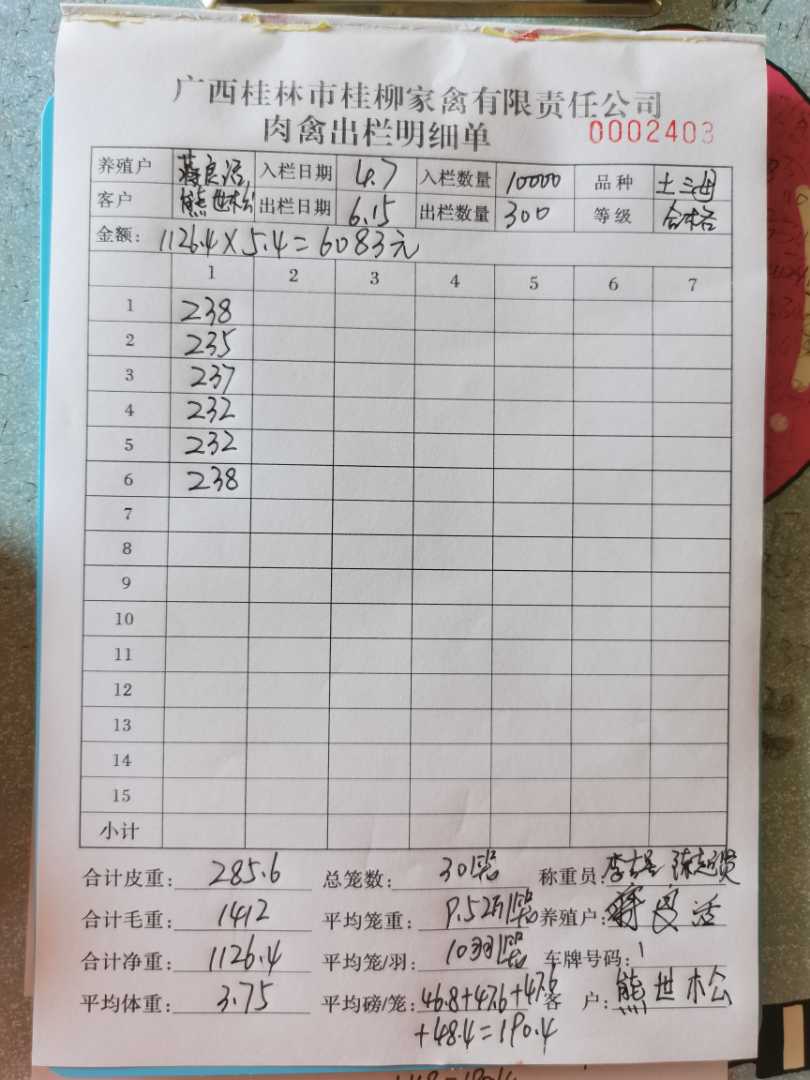 广西桂林市桂柳家禽有限责任公司
肉禽出栏明细单 0002403
养殖户 蒋良活 入栏日期 4.7 入栏数量 10000 品种 土三母
客户 熊世松 出栏日期 6.15 出栏数量 300 等级 合格
金额: 1126.4×5.4=6083元
1 2 3 4 5 6 7
1 238
2 235
3 237
4 232
5 232
6 238
7
8
9
10
11
12
13
14
15
小计
合计皮重: 285.6 总笼数: 30 称重员:
合计毛重: 1412 平均笼重: 9.52 养殖户: 蒋良活
合计净重: 1126.4 平均笼/羽: 10羽 车牌号码:
平均体重: 3.75 平均磅/笼: 46.8+47.6+47.6 客户: 熊世松
+48.4=190.4